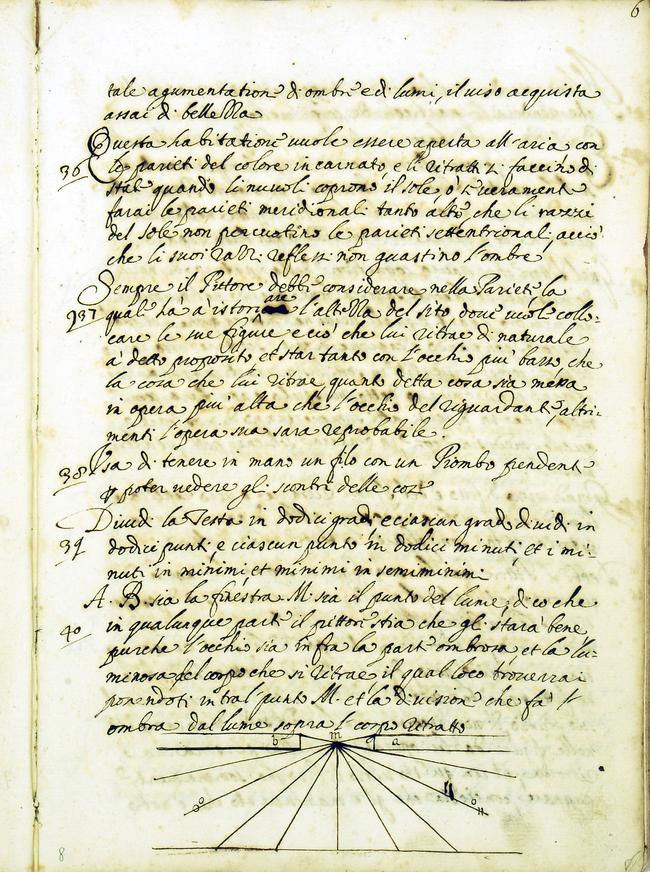 6
tale agumentatione di ombre e di lumi, il uiso acquista
assai di bellezza
Questa habitatione uuole essere aperta all'aria con
36 le parieti del colore incarnato, e li ritratti si faccino di
state quando li nuuoli coprono il sole, ò ueramente
farai le parieti meridionali tanto alte che li raggi
del sole non percuotino le parieti settentrionali acciò
che li suoi razzi reflessi non guastino l'ombre
Sempre il Pittore debbe considerare nella Pariete la
37 quale há à istoriare l'altezza del sito doue uuole collo-
care le sue figure e ciò che lui ritrae di naturale
à detto proposito et star tanto con l'occhio piú basso, che
la cosa che lui ritrae quanto detta cosa sia messa
in opera più alta che l'occhio del riguardante, altri-
menti l'opera sua sara reprobabile.
38 Usa di tenere in mano un filo con un Piombo pendente
p poter uedere gli scontri delle cose
Diuidi la Testa in dodici gradi e ciascun grado diuidi in
39 dodici punti e ciascun punto in dodici minuti et i mi-
nuti in minimi et minimi in semiminimi
A. B sia la finestra M sia il punto del lume, dico che
40 in qualunque parte il pittore stia che gli stara bene
purche l'occhio sia infra la parte ombrosa et la lu-
minosa del corpo che si ritrae il qual loco trouerrai
ponendoti in tal punto M et la diuisione che fa l'
ombra dal lume sopra il corpo ritratto
b m a
8